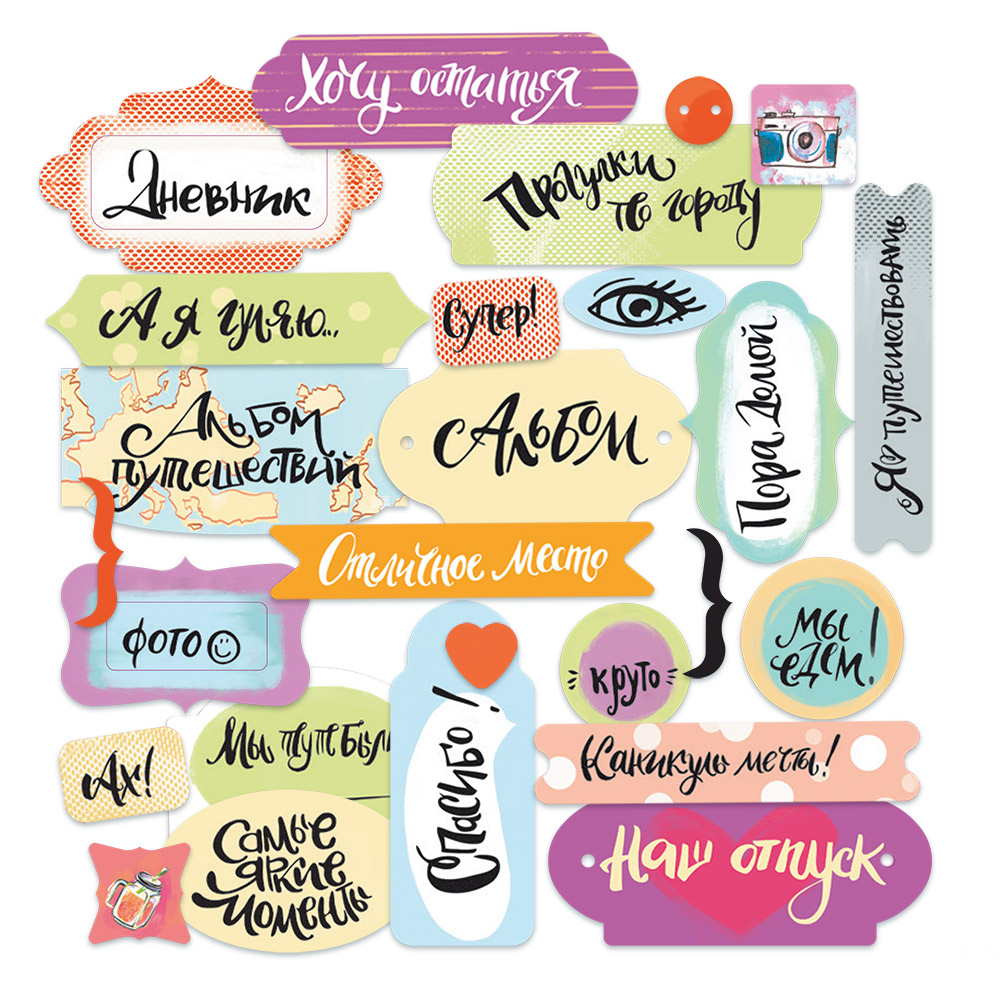 Хочу остаться
Дневник
Прогулки
по городу
А я гуляю...
Супер!
Альбом
путешествий
Альбом
Пора домой
Я ♡ путешествовать
Отличное место
фото☺
круто
мы
едем!
Мы тут были
Каникулы мечты!
Ах!
Спасибо!
Самые
яркие
моменты
Наш отпуск